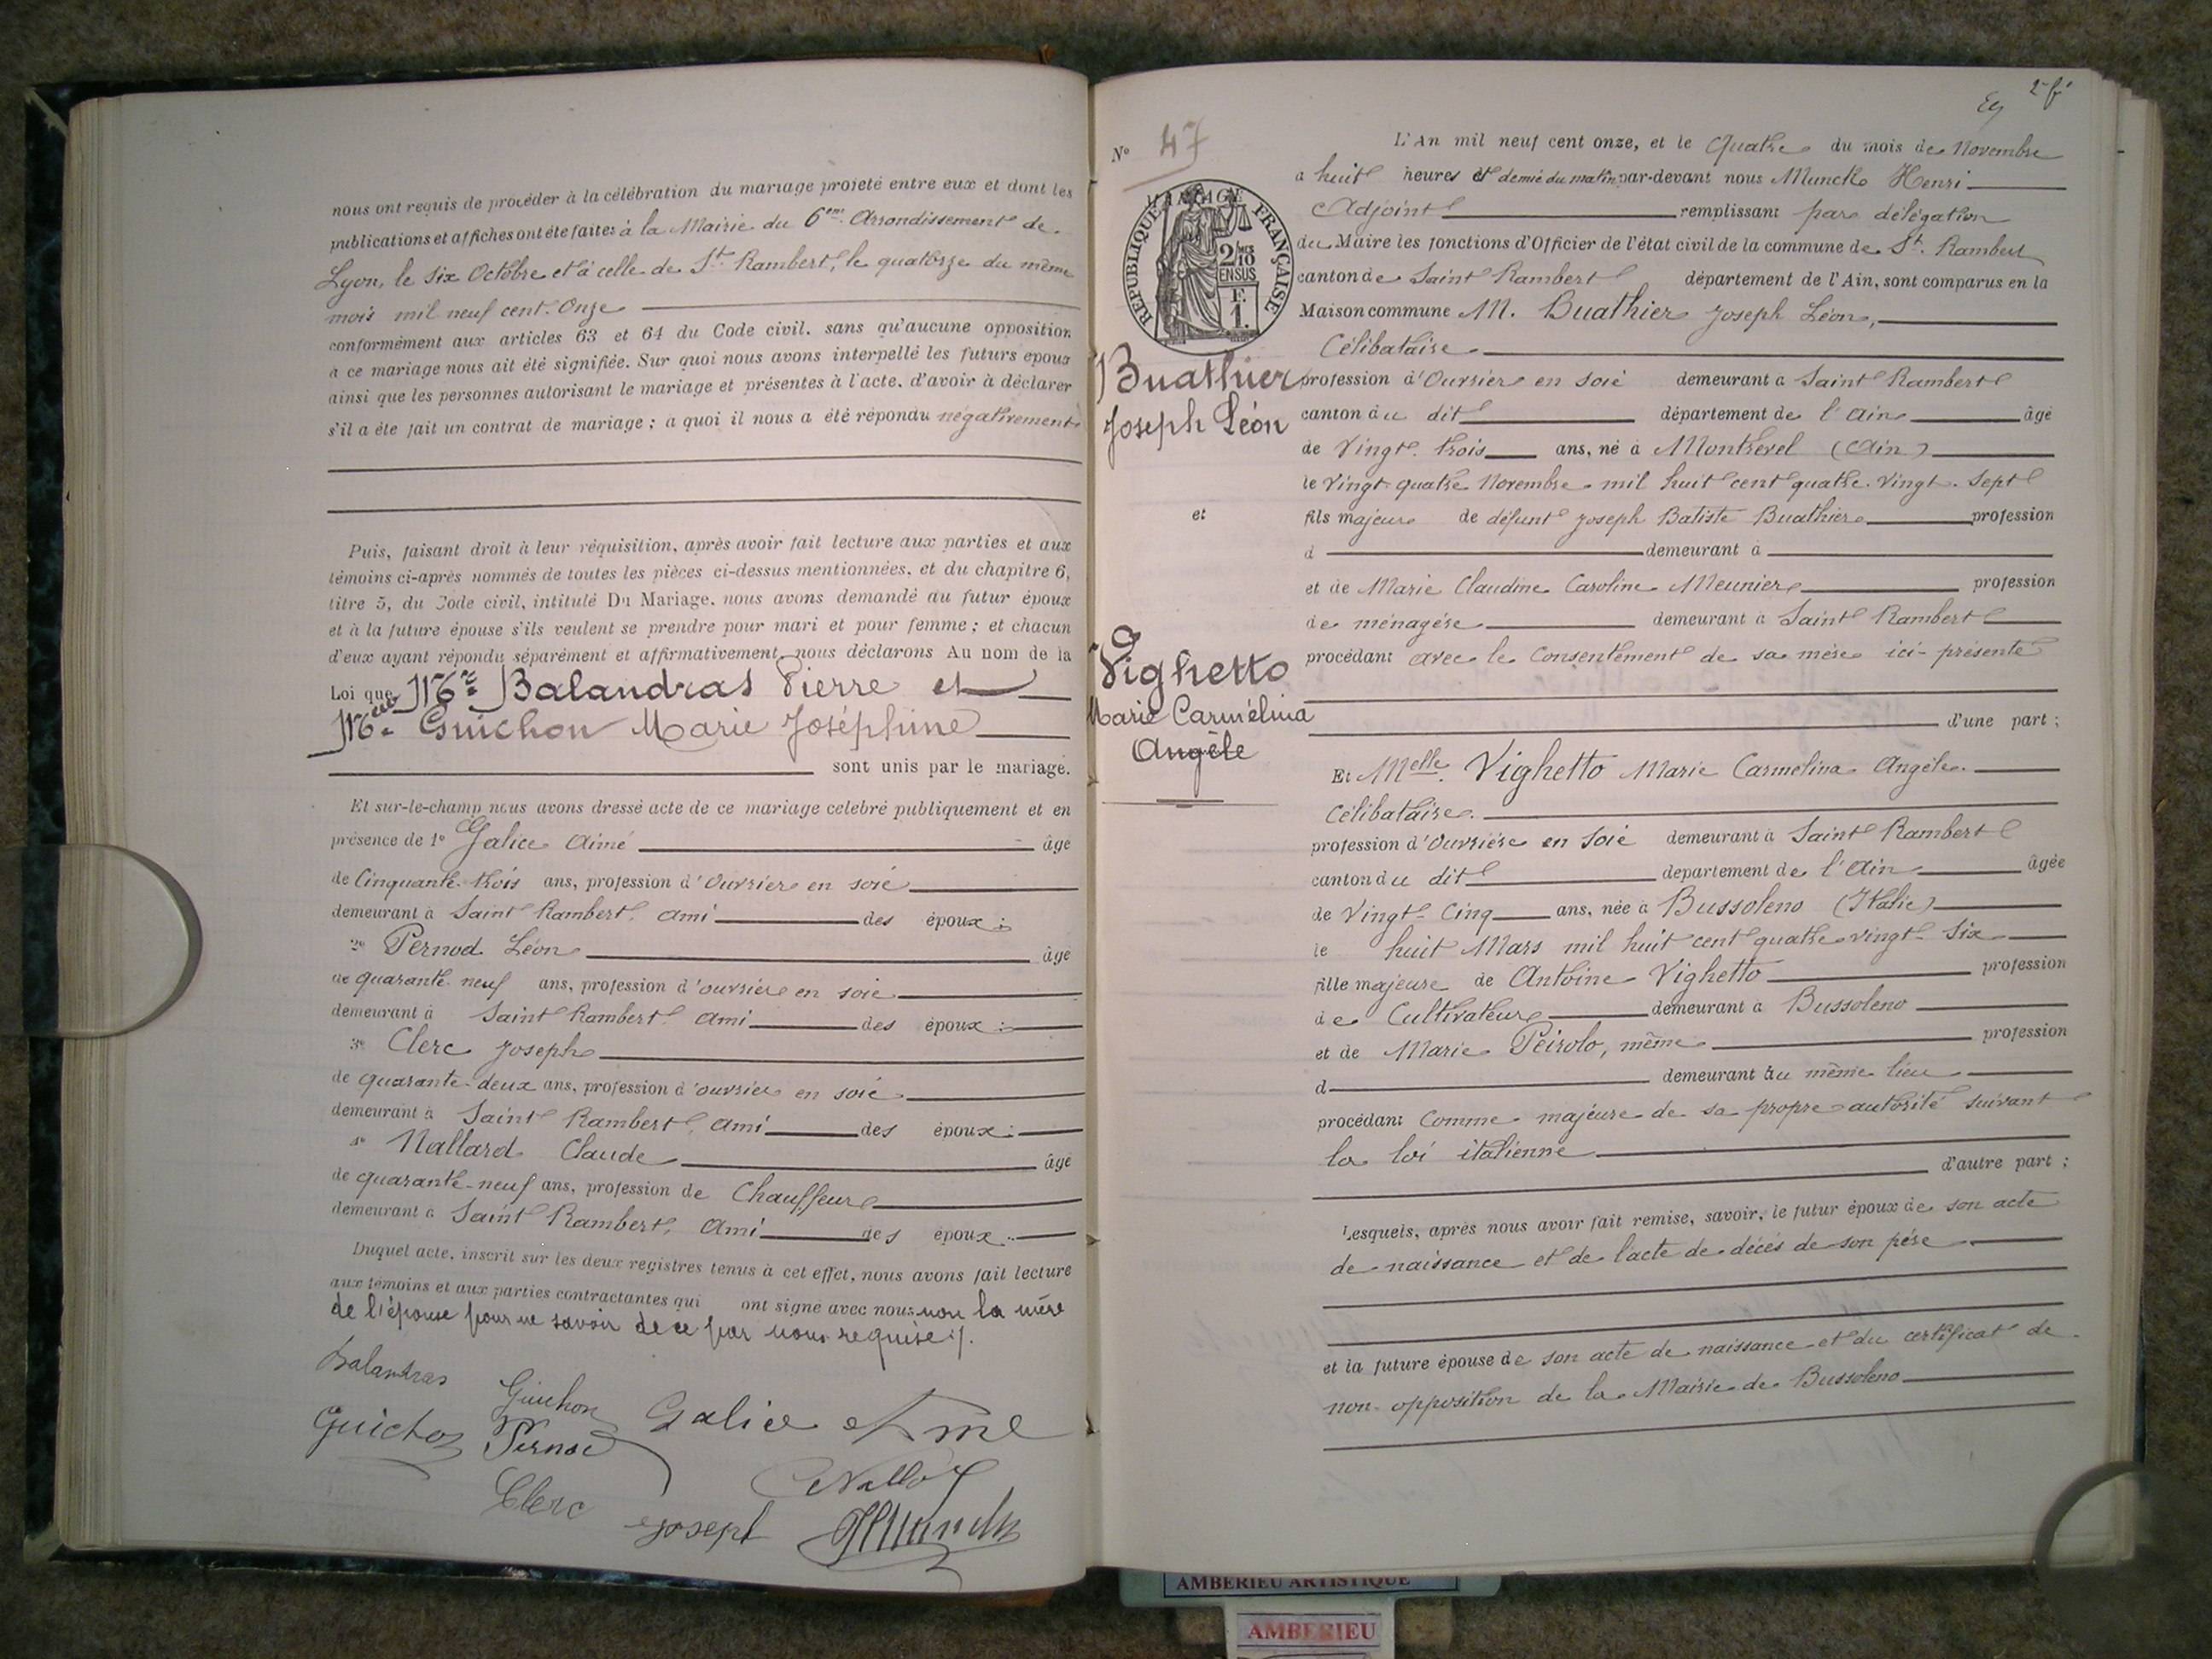 nous ont requis de procéder à la célébration du mariage projeté entre eux et dont les
publications et affiches ont été faites à la Mairie du 6eme Arrondissement de
Lyon, le six Octobre et à celle de St Rambert, le quatorze du même
mois mil neuf cent Onze
conformément aux articles 63 et 64 du Code civil, sans qu'aucune opposition
à ce mariage nous ait été signifiée. Sur quoi nous avons interpellé les futurs époux
ainsi que les personnes autorisant le mariage et présentes à l'acte, d'avoir à déclarer
s'il a été fait un contrat de mariage ; à quoi il nous a été répondu négativement
Puis, faisant droit à leur réquisition, après avoir fait lecture aux parties et aux
témoins ci-après nommés de toutes les pièces ci-dessus mentionnées, et du chapitre 6,
titre 5, du Code civil, intitulé Du Mariage, nous avons demandé au futur époux
et à la future épouse s'ils veulent se prendre pour mari et pour femme ; et chacun
d'eux ayant répondu séparément et affirmativement, nous déclarons Au nom de la
Loi que Mr Balandras Pierre et
Melle Guichon Marie Joséphine
sont unis par le mariage.
Et sur-le-champ nous avons dressé acte de ce mariage célébré publiquement et en
présence de 1° Galice Aimé âgé
de Cinquante-trois ans, profession d'Ouvrier en soie
demeurant à Saint Rambert, ami des époux ;
2° Pernod Léon âgé
de quarante-neuf ans, profession d'ouvrier en soie
demeurant à Saint Rambert, ami des époux ;
3° Clerc Joseph
de quarante-deux ans, profession d'ouvrier en soie
demeurant à Saint Rambert, ami des époux ;
4° Nallard Claude âgé
de quarante-neuf ans, profession de Chauffeur
demeurant à Saint Rambert, ami des époux.
Duquel acte, inscrit sur les deux registres tenus à cet effet, nous avons fait lecture
aux témoins et aux parties contractantes qui ont signé avec nous non la mère
de l'épouse pour ne savoir de ce par nous requise ./.
Balandras Guichon Galice Aimé
Guichon Pernod
Clerc Joseph
2e ft
N° 47
MARIAGE
REPUBLIQUE FRANÇAISE
2/10
EN SUS
F.
1.
Buathier
Joseph Léon
et
Vighetto
Marie Carmélina
Angèle
L'An mil neuf cent onze, et le Quatre du mois de Novembre
à huit heures et demie du matin par-devant nous Munck Henri
Adjoint remplissant par délégation
du Maire les fonctions d'Officier de l'état civil de la commune de St Rambert
canton de Saint Rambert département de l'Ain, sont comparus en la
Maison commune M. Buathier Joseph Léon,
Célibataire
profession d'Ouvrier en soie demeurant à Saint Rambert
canton du dit département de l'Ain âgé
de Vingt-trois ans, né à Montrevel (Ain)
le Vingt quatre Novembre mil huit cent quatre-vingt-sept
fils majeur de défunt Joseph Batiste Buathier profession
d demeurant à
et de Marie Claudine Caroline Meunier profession
de ménagère demeurant à Saint Rambert
procédant avec le Consentement de sa mère ici-présente
d'une part ;
Et Melle Vighetto Marie Carmelina Angèle
Célibataire
profession d'Ouvrière en soie demeurant à Saint Rambert
canton du dit département de l'Ain âgée
de Vingt-Cinq ans, née à Bussoleno (Italie)
le huit Mars mil huit cent quatre vingt-six
fille majeure de Antoine Vighetto profession
de Cultivateur demeurant à Bussoleno
et de Marie Peirolo, même profession
d demeurant au même lieu
procédant Comme majeure de sa propre autorité suivant
la loi italienne
d'autre part ;
Lesquels, après nous avoir fait remise, savoir, le futur époux de son acte
de naissance et de l'acte de décès de son père
et la future épouse de son acte de naissance et du certificat de
non-opposition de la Mairie de Bussoleno
AMBERIEU ARTISTIQUE
AMBERIEU